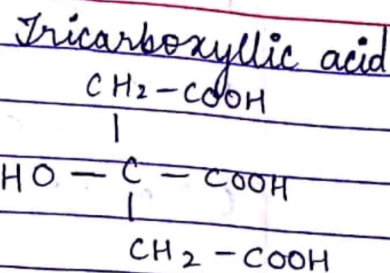 Tricarboxyllic acid
CH2-COOH
|
HO - C - COOH
|
CH2 - COOH